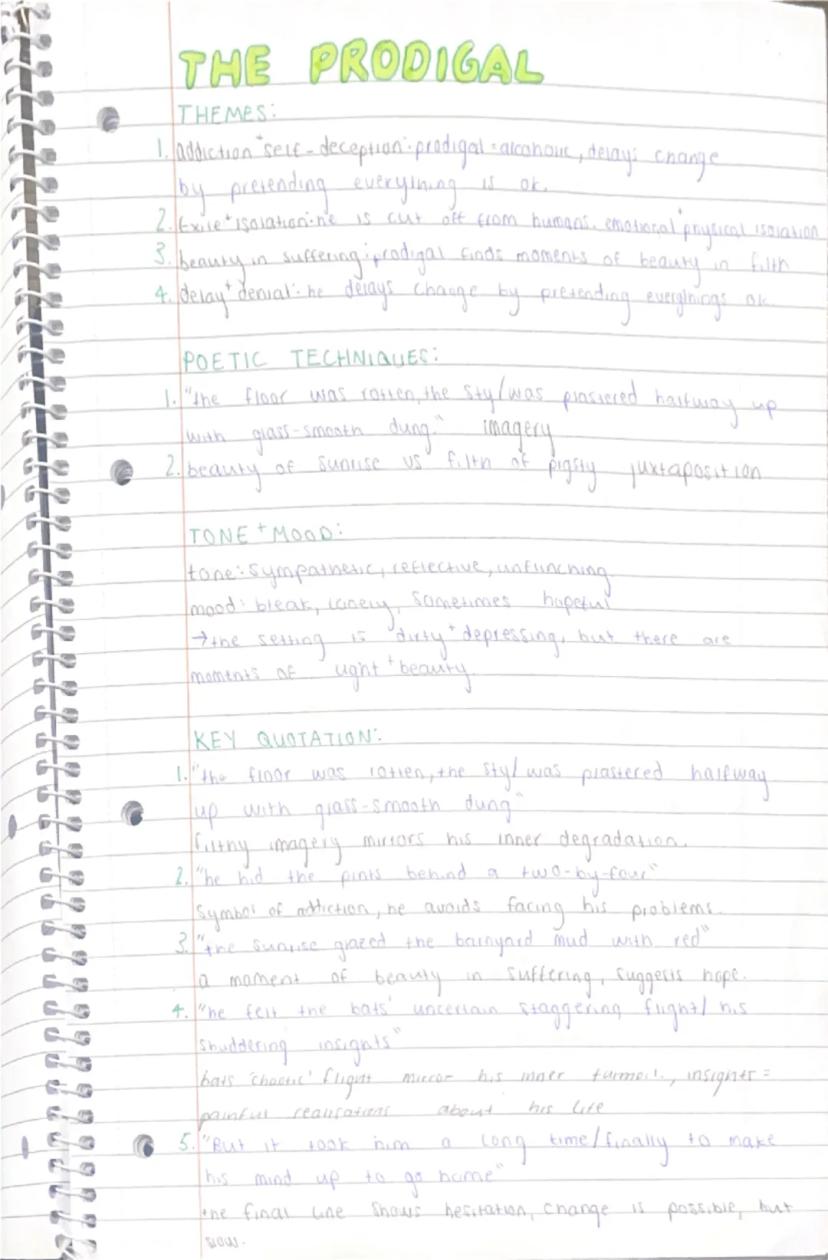 THE PRODIGAL
THEMES:
1. addiction + self-deception: prodigal = alcoholic, delays change
by pretending everything is ok.
2. Exile + isolation: he is cut off from humans. emotional + physical isolation
3. beauty in suffering: prodigal finds moments of beauty in filth
4. delay + denial: he delays change by pretending everythings ok
POETIC TECHNIQUES:
1. "the floor was rotten, the sty/was plastered halfway up
with glass-smooth dung." imagery
2. beauty of sunrise vs filth of pigsty juxtaposition
TONE + MOOD:
tone: sympathetic, reflective, unflinching
mood: bleak, lonely, sometimes hopeful
→ the setting is dirty + depressing, but there are
moments of light + beauty
KEY QUOTATION:
1. "the floor was rotten, the sty/ was plastered halfway
up with glass-smooth dung"
filthy imagery mirrors his inner degradation.
2. "he hid the pints behind a two-by-four"
symbol of addiction, he avoids facing his problems.
3. "the sunrise glazed the barnyard mud with red"
a moment of beauty in suffering, suggests hope.
4. "he felt the bats' uncertain staggering flight/ his
shuddering insights"
bats 'chaotic' flight mirror his inner turmoil, insights =
painful realisations about his life
5. "But it took him a long time/finally to make
his mind up to go home"
the final line shows hesitation, change is possible, but
slow.